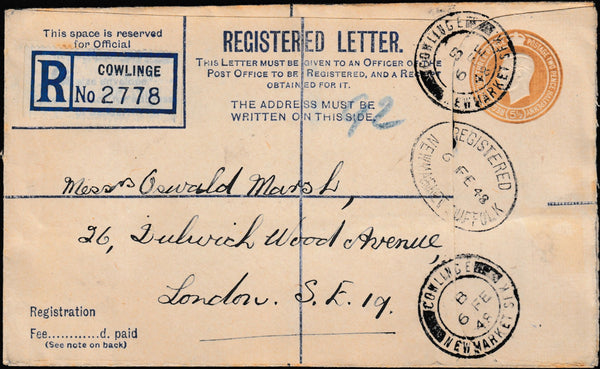 This space is reserved
for Official
R
COWLINGE
No 2778
REGISTERED LETTER.
THIS LETTER MUST BE GIVEN TO AN OFFICER OF THE
POST OFFICE TO BE REGISTERED, AND A RE
OBTAINED FOR IT.
THE ADDRESS MUST BE
WRITTEN ON THIS SIDE.
92
COWLINGE
B
6 FE
48
NEWMARKET
POSTAGE TWO PENCE HALFPENNY
5½
REGISTERED
6 FE 48
NEWMARKET SUFFOLK
Messrs Oswald Marsh,
26, Dulwich Wood Avenue,
London. S. E. 19.
COWLINGE
B
6 FE
48
NEWMARKET
Registration
Fee............d. paid
(See note on back)